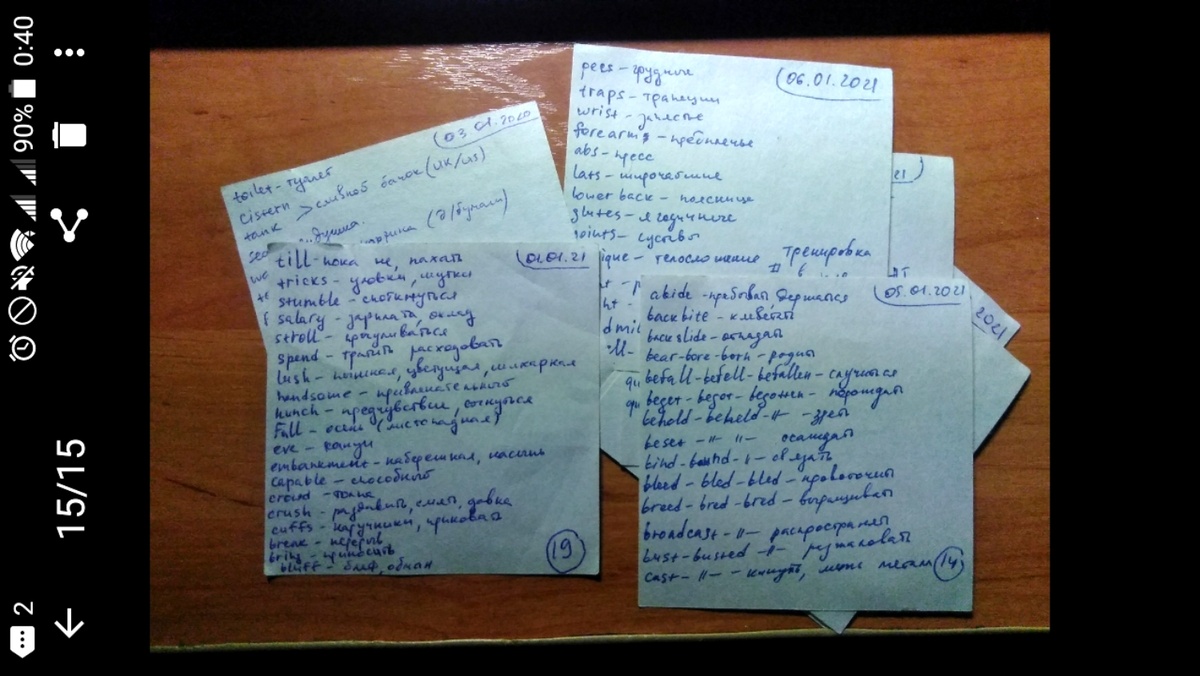 0:40
90%
15/15
2
03.01.2020
toilet - туалет
cistern
tank > сливной бачок (UK/US)
(д/бумаги)
01.01.21
till - пока не, пахать
tricks - уловки, шутки
stumble - споткнуться
salary - зарплата, оклад
stroll - прогуливаться
spend - тратить, расходовать
lush - пышная, цветущая, шикарная
handsome - привлекательный
hunch - предчувствие, согнуться
Fall - осень (листопадная)
eve - канун
embankment - набережная, насыпь
capable - способный
crowd - толпа
crush - раздавить, смять, давка
cuffs - наручники, приковать
break - перерыв
bring - приносить
bluff - блеф, обман
19
06.01.2021
pecs - грудные
traps - трапеции
wrist - запястье
forearms - предплечье
abs - пресс
lats - широчайшие
lower back - поясница
glutes - ягодичные
joints - суставы
ique - телосложение
тренировка
05.01.2021
abide - пребывать, держаться
backbite - клеветать
backslide - отпадать
bear-bore-born - родить
befall-befell-befallen - случиться
beget-begot-begotten - порождать
behold-beheld-//- зреть
beset -//- -//- осаждать
bind-bound-//- связать
bleed-bled-bled - кровоточить
breed-bred-bred - выращивать
broadcast -//- распространять
bust-busted -//- разжаловать
cast -//- - кинуть, метать
14
21
2021